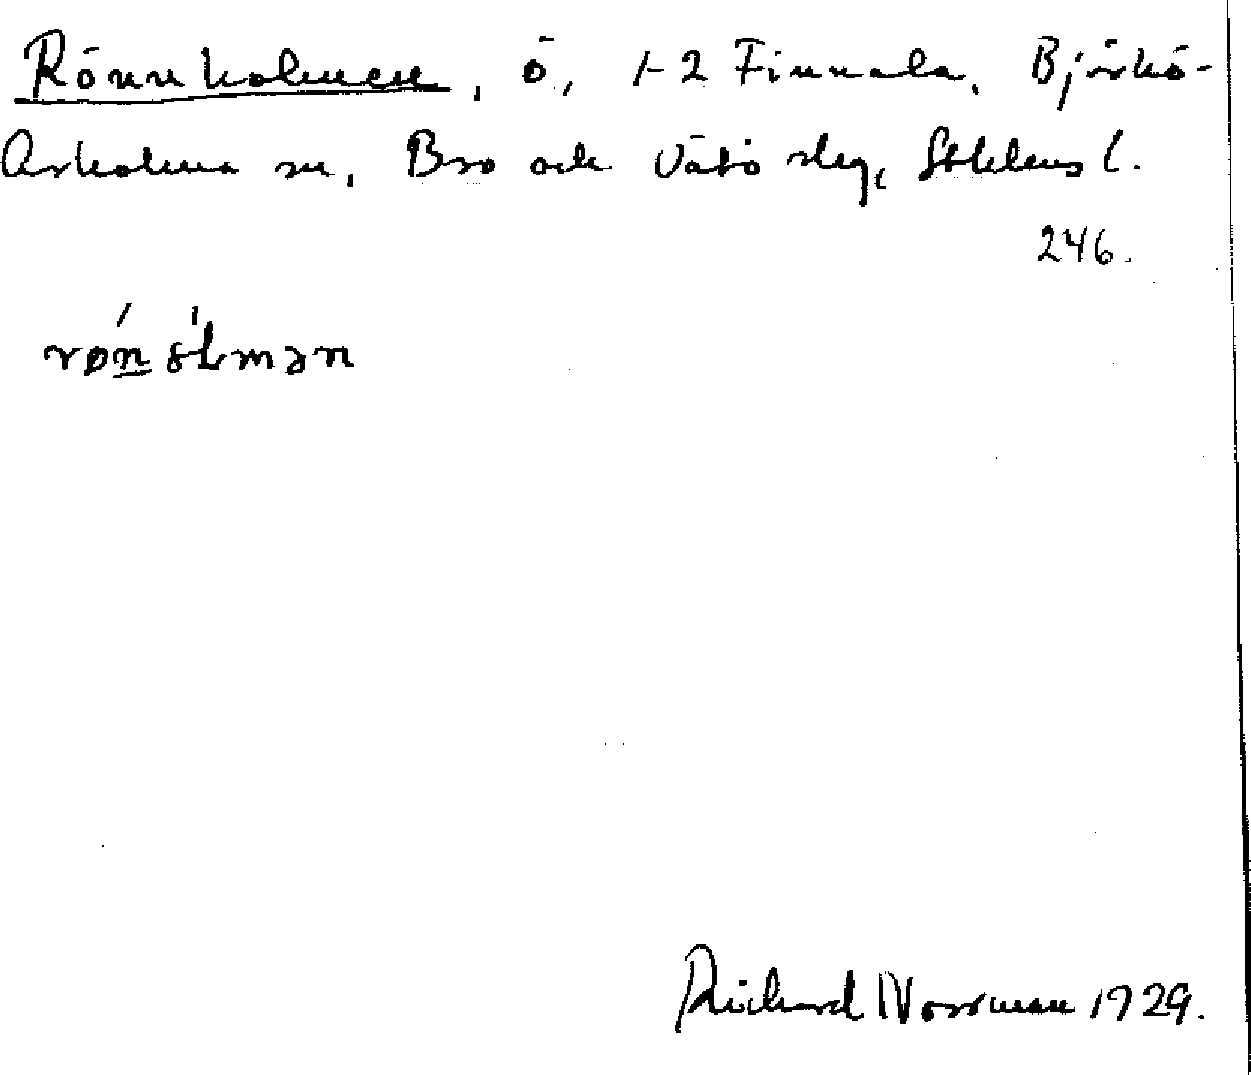 Rönnholmen, ö, 1-2 Finnala, Björkö-
Arholma sn, Bro och Vätö slg, Sthlms l.
246.
Richard Norrman 1929.